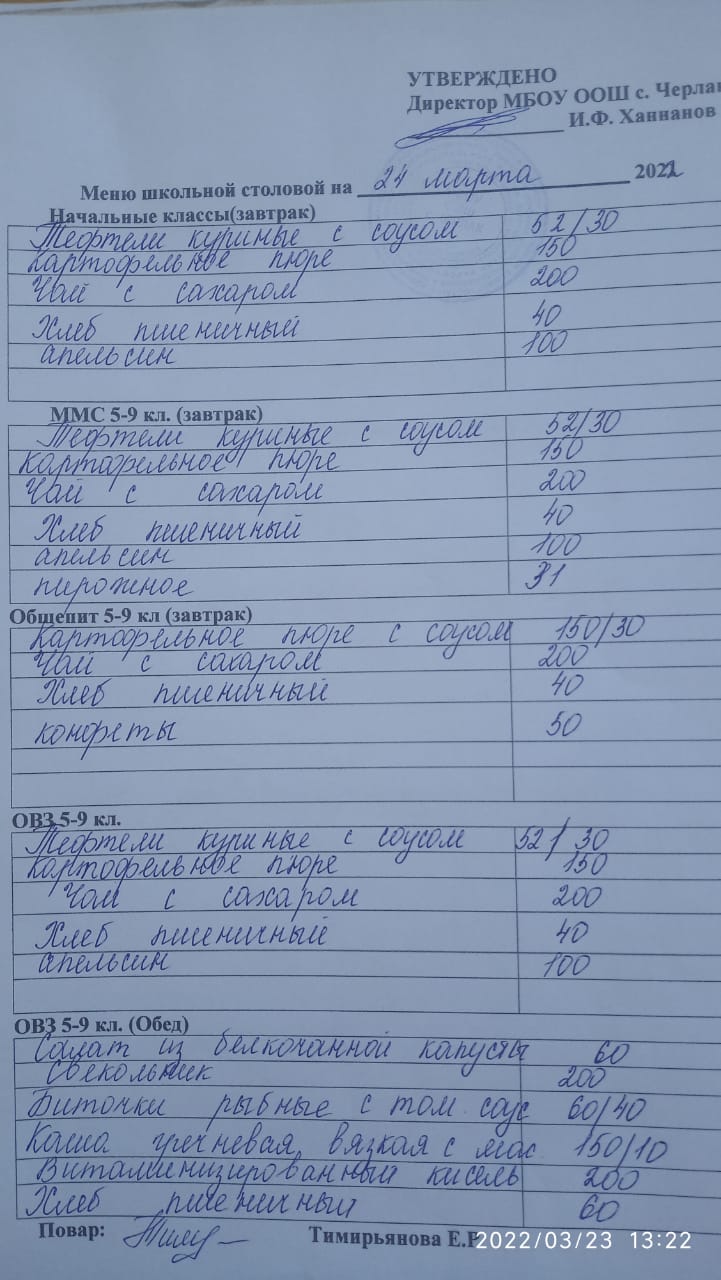 УТВЕРЖДЕНО
Директор МБОУ ООШ с. Черлак
И.Ф. Ханнанов
Меню школьной столовой на 24 марта 2022
Начальные классы(завтрак)
Тефтели куриные с соусом 52/30
картофельное пюре 150
Чай с сахаром 200
Хлеб пшеничный 40
апельсин 100
ММС 5-9 кл. (завтрак)
Тефтели куриные с соусом 52/30
картофельное пюре 150
Чай с сахаром 200
Хлеб пшеничный 40
апельсин 100
пирожное 31
Общепит 5-9 кл (завтрак)
картофельное пюре с соусом 150/30
Чай с сахаром 200
Хлеб пшеничный 40
конфеты 50
ОВЗ 5-9 кл.
Тефтели куриные с соусом 52/30
картофельное пюре 150
Чай с сахаром 200
Хлеб пшеничный 40
апельсин 100
ОВЗ 5-9 кл. (Обед)
Салат из белкочанной капусты 60
Свекольник 200
Биточки рыбные с том. соус 60/40
Каша гречневая вязкая с мас. 150/10
Витаминизированный кисель 200
Хлеб пшеничный 60
Повар: Тимирьянова Е.Р.
2022/03/23 13:22